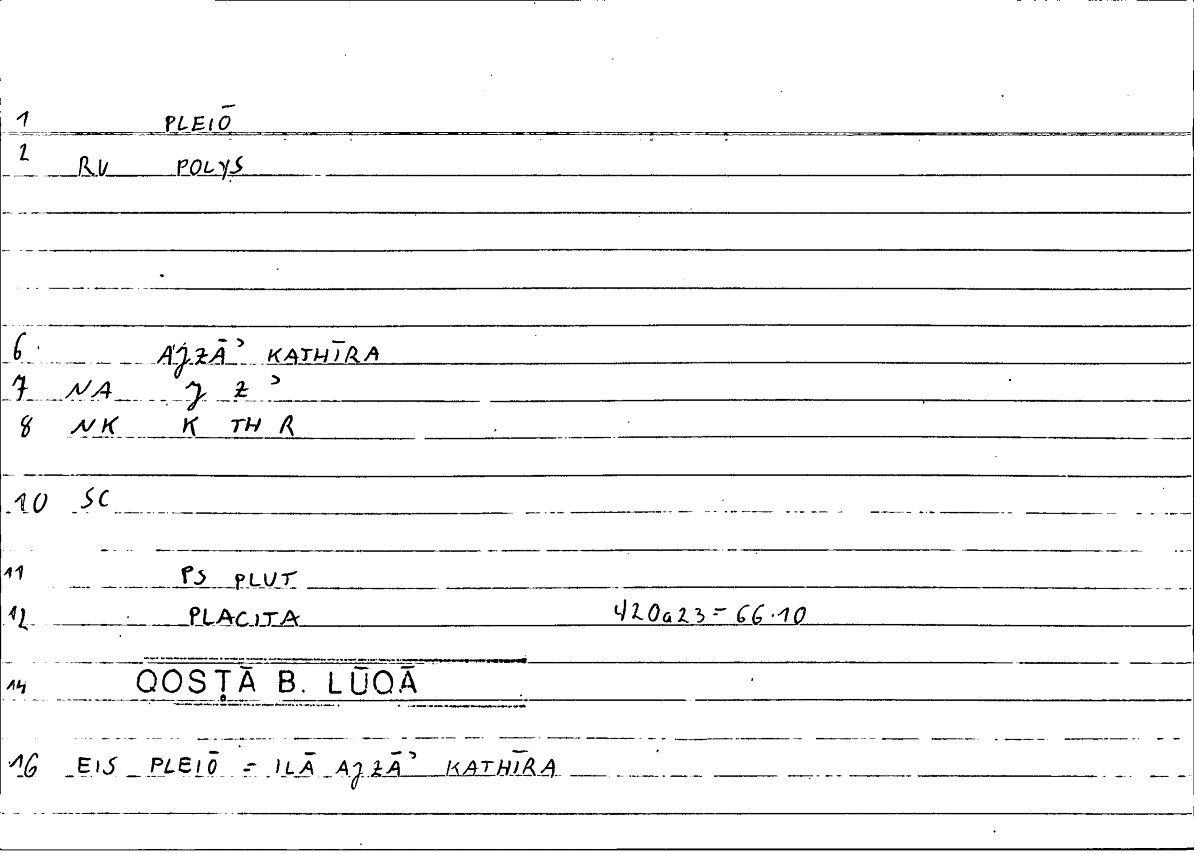 1 PLEIŌ
2 RV POLYS
6 AJZĀʾ KATHĪRA
7 NA J Z ʾ
8 NK K TH R
10 SC
11 PS PLUT
12 PLACITA 420a23 = 66.10
14 QOSṬĀ B. LŪQĀ
16 EIS PLEIŌ = ILĀ AJZĀʾ KATHĪRA